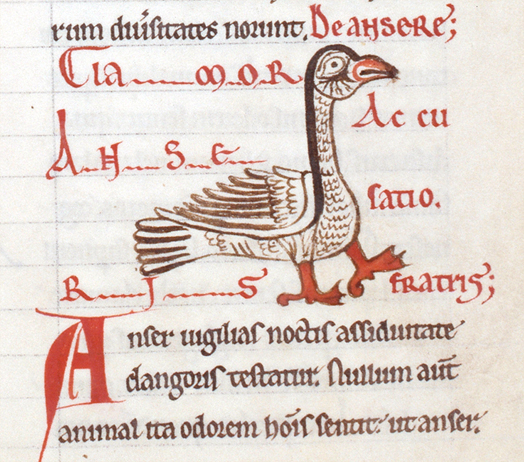 rum diu͛sitates norunt. De ansere;
Cla M.O.R
Ac cu
A.H.S.E
satio.
R I S fratris;
Anser uigilias noctis assiduitate
clangoris testatur. Nullum aut̄
animal ita odorem hoīs sentit: ut anser.